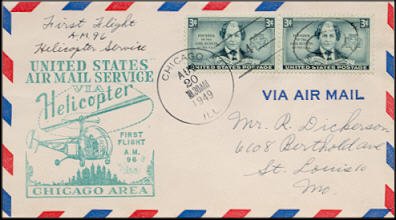 First Flight
A.M. 96
Helicopter Service
UNITED STATES
AIR MAIL SERVICE
VIA
Helicopter
FIRST
FLIGHT
A.M.
96
CHICAGO AREA
CHICAGO
AUG
20
1949
ILL.
3¢
3¢
UNITED STATES POSTAGE
UNITED STATES POSTAGE
VIA AIR MAIL
Mr. R. Dickerson
6108 Bertholdave
St. Louis 10
Mo.